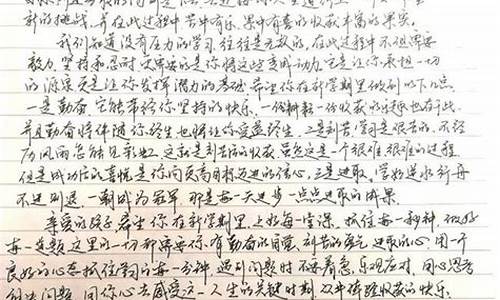 新的挑战，并在此过程中苦中有乐，累中有喜的收获丰富的果实。
我们知道没有压力的学习往往是无效的，在此过程中不但需要
毅力，坚持和忍耐，更需要的是你将这些变成动力，它是让你承担一切
的源泉更是让你发挥潜力的基础。希望你在新学期里做到以下几点
一是勤奋，它能带给你坚持的快乐，一份耕耘一份收获的乐趣也在于此，
并且勤奋将伴随你终生也将让你受益终生。二是刻苦，学习是艰苦的，不经
历风雨怎能见彩虹，这就是刻苦后的收获，虽然这是一个很难很难的过程
但是成功后的喜悦是你向更高目标迈进的信心。三是进取，学如逆水行舟
不进则退，一朝成为冠军，那是每一天进步一点点进取的成果。
亲爱的孩子，希望你在新学期里，上好每一堂课，抓住每一秒钟，做好
每一道题，这里的一切都需要你，有勤奋的自觉，刻苦的 进取的心，用一个
良好的心态抓住学习的每一分钟，遇到问题时不要着急，乐观应对，用心思考
问题，用你心去感受这一人生的关键时期，从中体验收获快乐